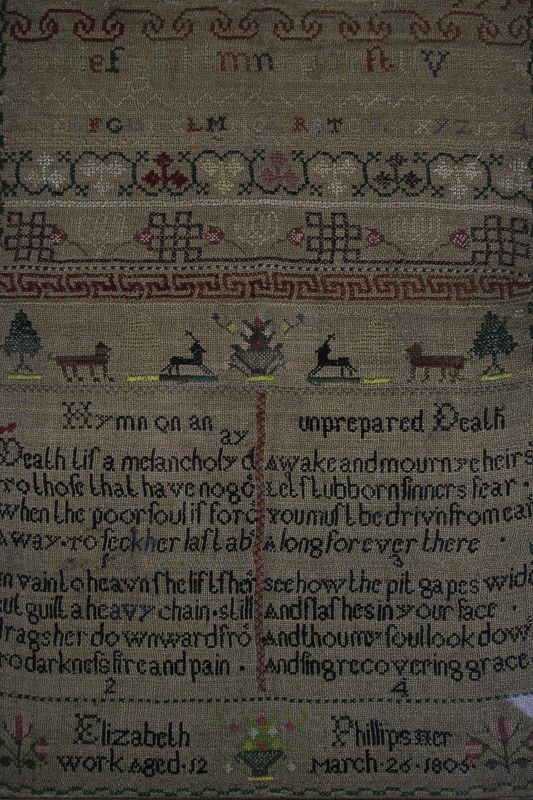 ef mn V
F G L M R S T X Y Z 1 2 4
Hymn on an unprepared Death
ay
Death tis a melancholy d
To those that have no go
when the poor soul is forc
Away. To seek her last ab
in vain to heavn she lifts he
but guilt a heavy chain. still
drags her downward fro
To darkness fire and pain.
2
Awake and mourn ye heirs
Let stubborn sinners fear.
You must be drivn from ear
A long for ever there
3
see how the pit gapes wide
And flashes in your face.
And thou my soul look dow
And sing recovering grace
4
Elizabeth Phillips Her
work Aged. 12 March. 26. 1805.